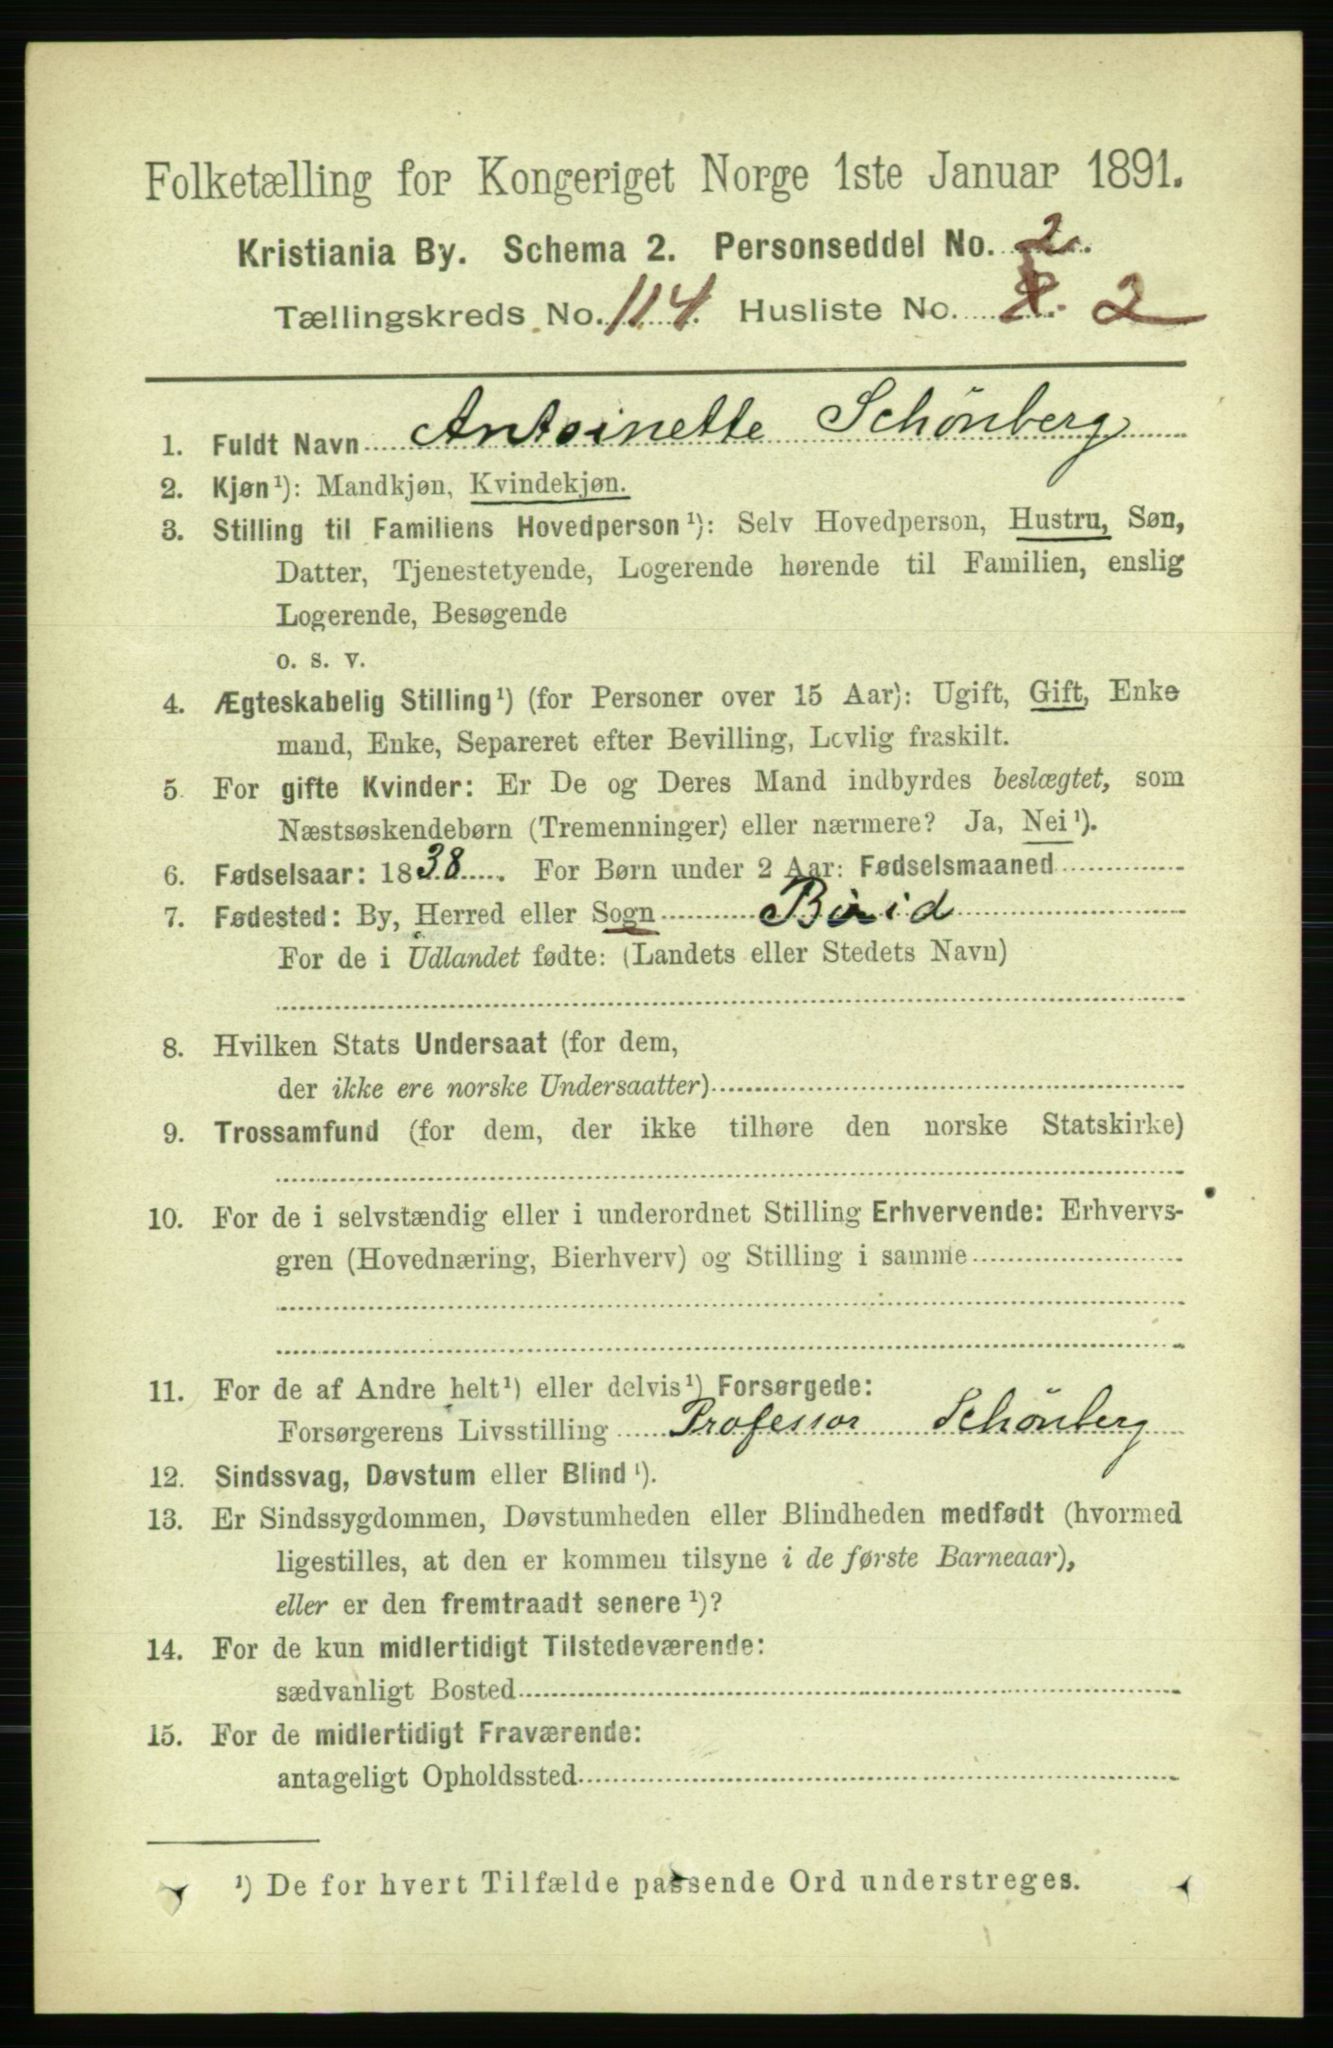 Folketælling for Kongeriget Norge 1ste Januar 1891.
Kristiania By. Schema 2. Personseddel No. 2.
Tællingskreds No. 114. Husliste No. 2
1. Fuldt Navn Antoinette Schönberg
2. Kjøn¹): Mandkjøn, Kvindekjøn.
3. Stilling til Familiens Hovedperson¹): Selv Hovedperson, Hustru, Søn,
Datter, Tjenestetyende, Logerende hørende til Familien, enslig
Logerende, Besøgende
o. s. v.
4. Ægteskabelig Stilling¹) (for Personer over 15 Aar): Ugift, Gift, Enke
mand, Enke, Separeret efter Bevilling, Lovlig fraskilt.
5. For gifte Kvinder: Er De og Deres Mand indbyrdes beslægtet, som
Næstsøskendebørn (Tremenninger) eller nærmere? Ja, Nei¹).
6. Fødselsaar: 1838. For Børn under 2 Aar: Fødselsmaaned
7. Fødested: By, Herred eller Sogn Birid
For de i Udlandet fødte: (Landets eller Stedets Navn)
8. Hvilken Stats Undersaat (for dem,
der ikke ere norske Undersaatter)
9. Trossamfund (for dem, der ikke tilhøre den norske Statskirke)
10. For de i selvstændig eller i underordnet Stilling Erhvervende: Erhvervs-
gren (Hovednæring, Bierhverv) og Stilling i samme
11. For de af Andre helt¹) eller delvis¹) Forsørgede:
Forsørgerens Livsstilling Professor Schönberg
12. Sindssvag, Døvstum eller Blind¹).
13. Er Sindssygdommen, Døvstumheden eller Blindheden medfødt (hvormed
ligestilles, at den er kommen tilsyne i de første Barneaar),
eller er den fremtraadt senere¹)?
14. For de kun midlertidigt Tilstedeværende:
sædvanligt Bosted
15. For de midlertidigt Fraværende:
antageligt Opholdssted
¹) De for hvert Tilfælde passende Ord understreges.